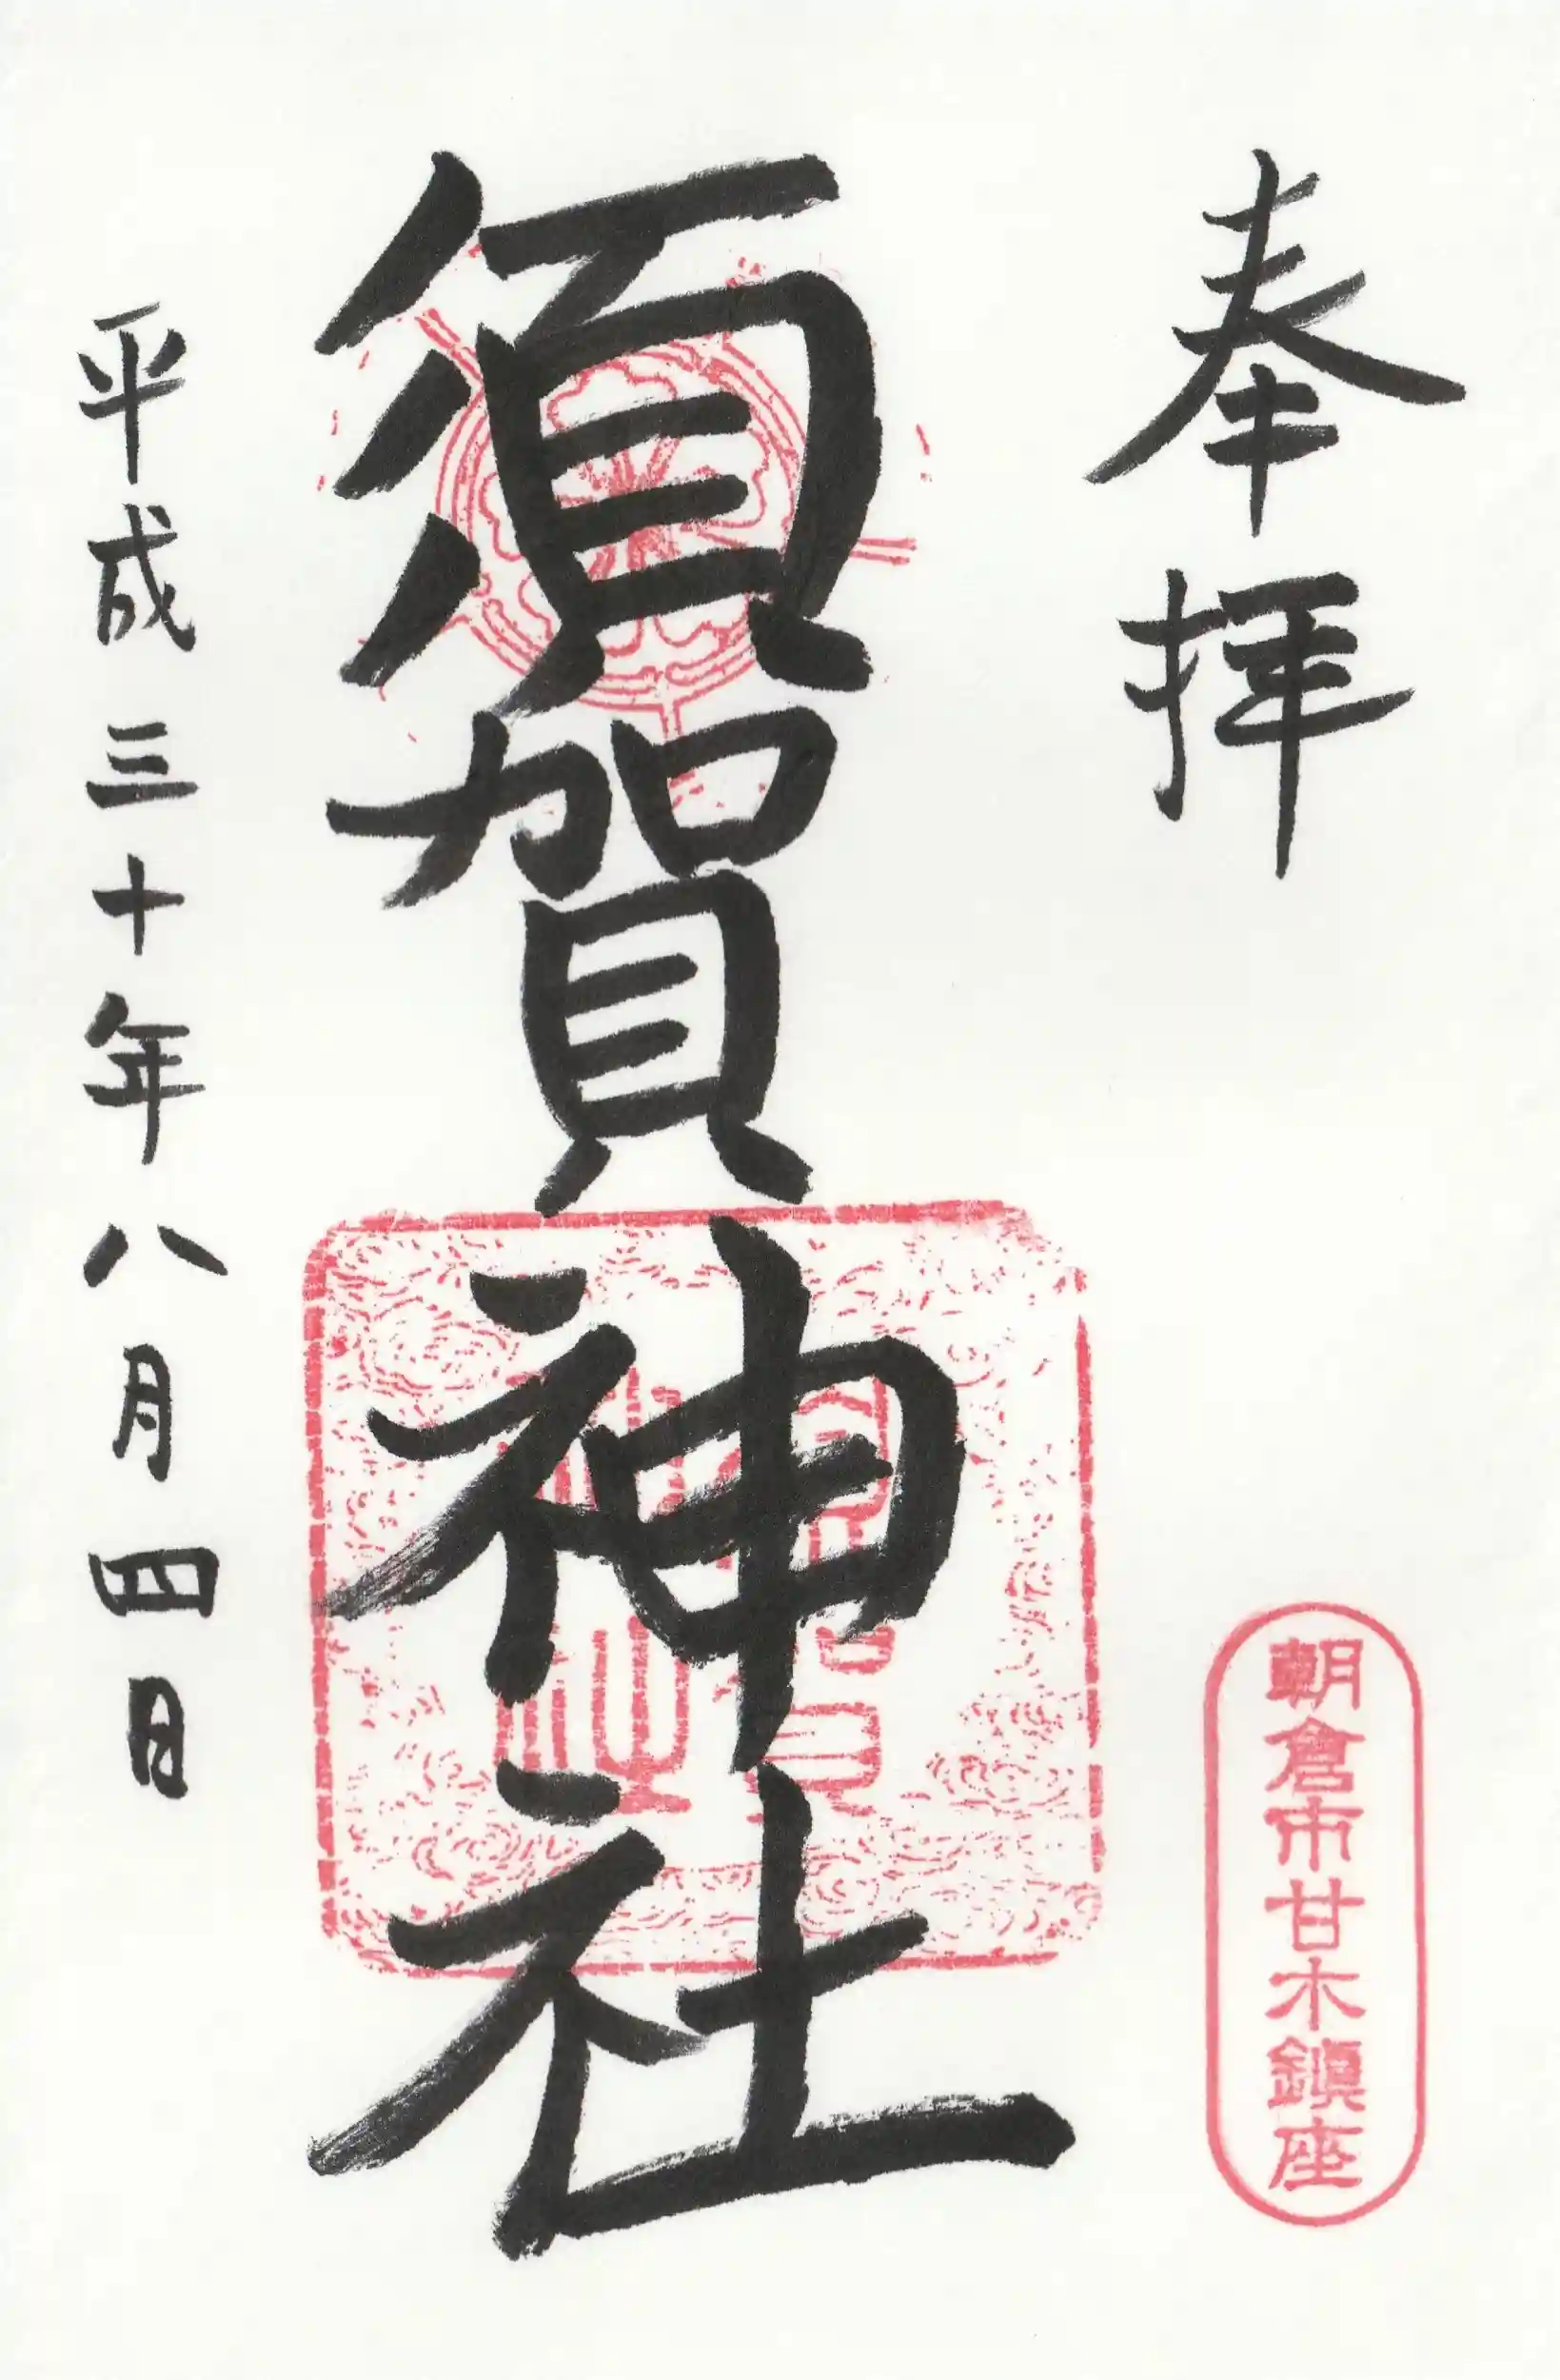 奉拝
朝倉市甘木鎮座
須賀神社
須賀神社
平成三十年八月四日